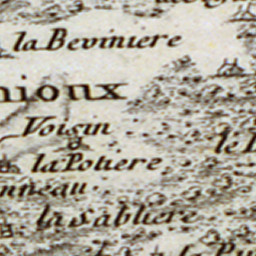 la Beviniere
nioux
Voisin
la Potiere
nneau.
la Sabliere